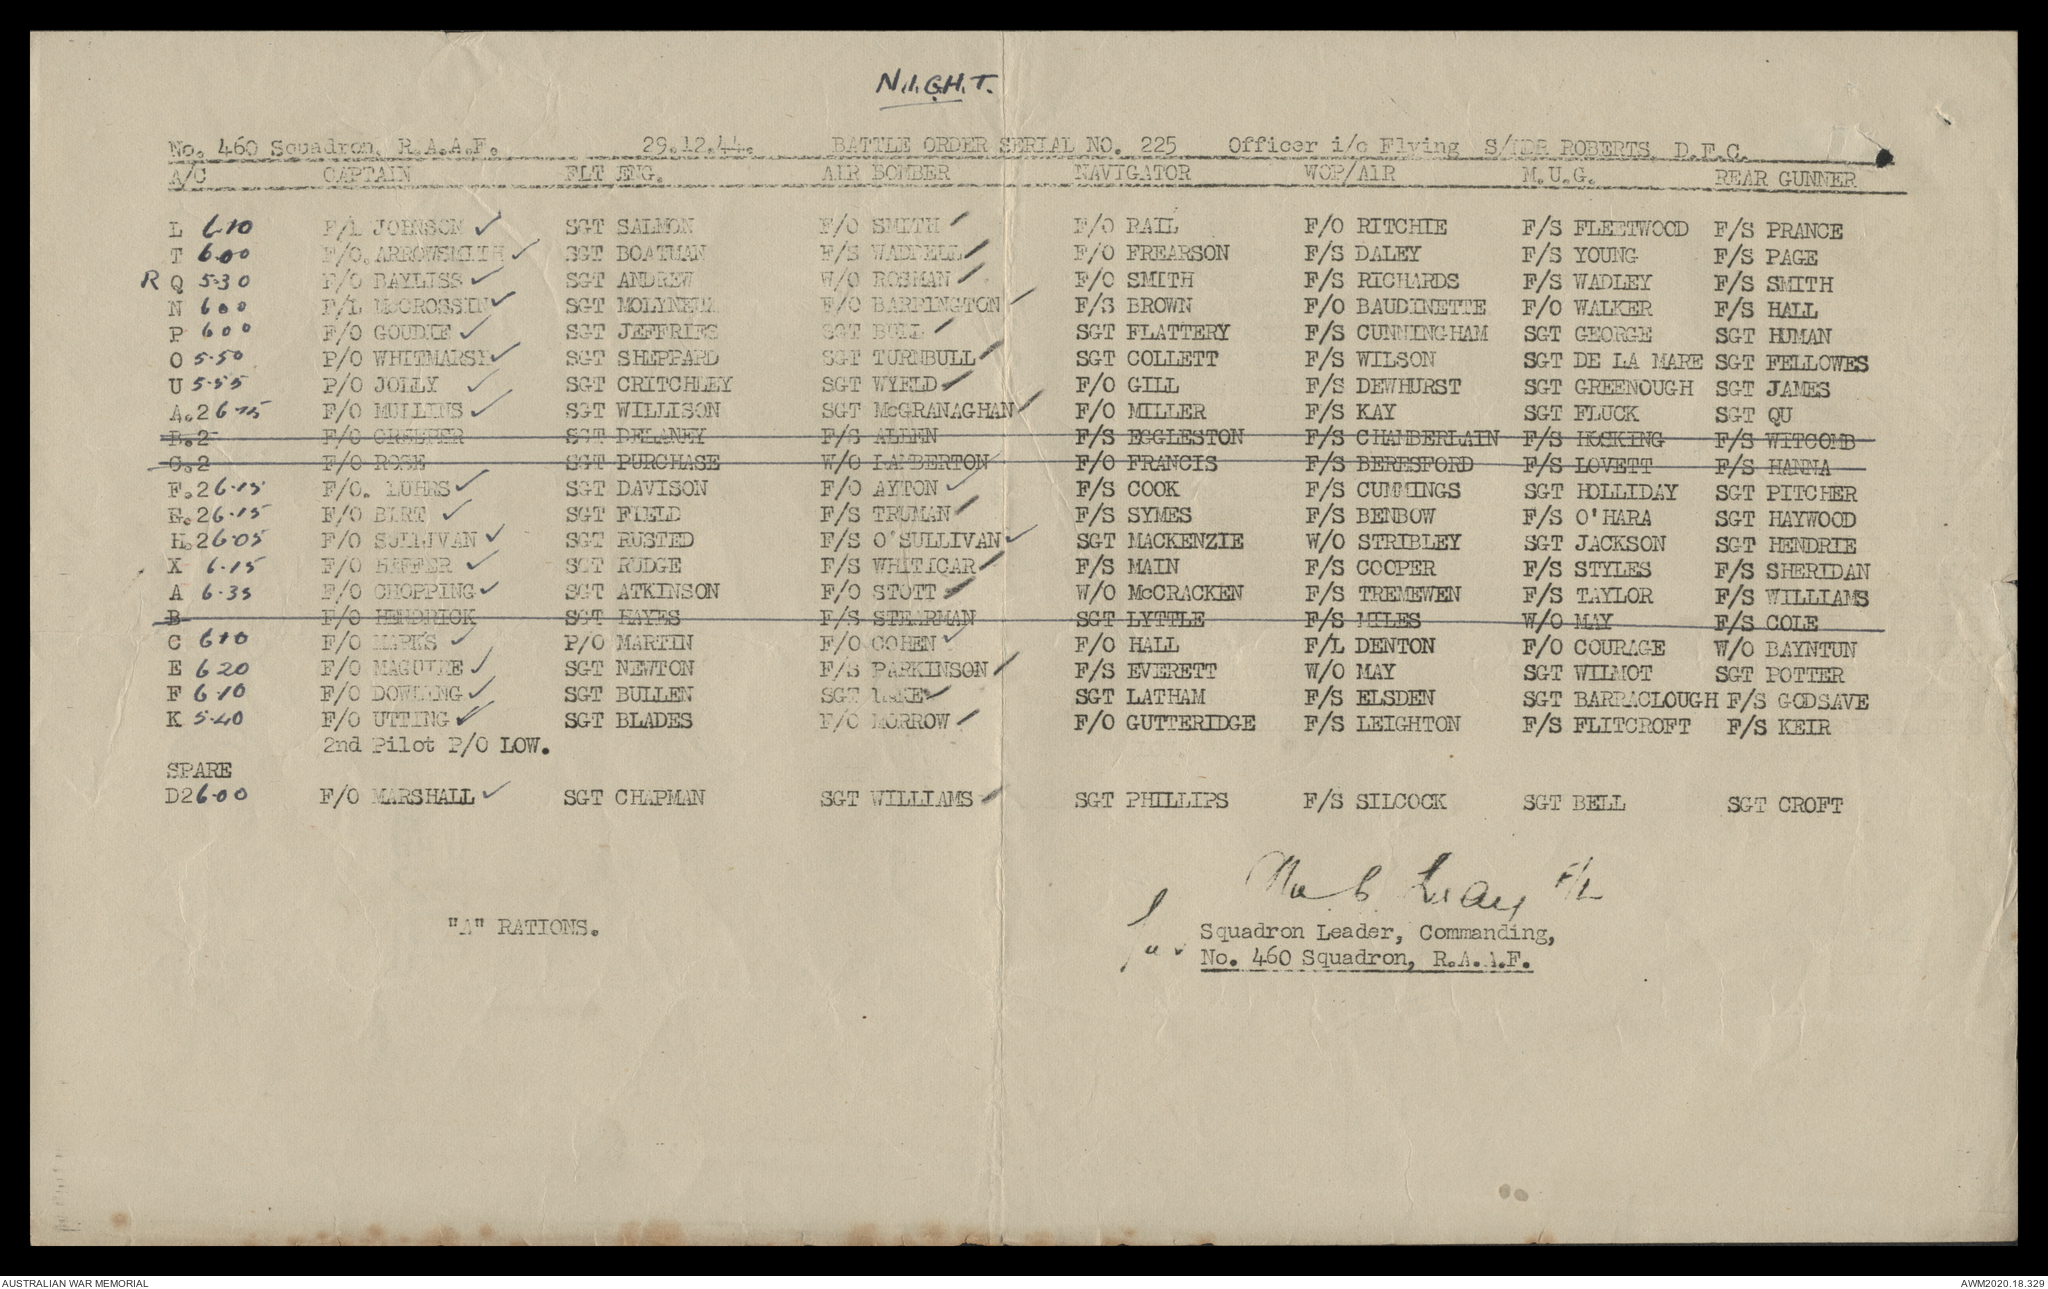 N.I.G.H.T.
No. 460 Squadron, R.A.A.F. 29.12.44. BATTLE ORDER SERIAL NO. 225 Officer i/c Flying S/LDR ROBERTS D.F.C.
A/C CAPTAIN FLT ENG. AIR BOMBER NAVIGATOR WOP/AIR M.U.G. REAR GUNNER
L 6.10 F/L JOHNSON ✓ SGT SALMON F/O SMITH ✓ F/O RAIL F/O RITCHIE F/S FLEETWOOD F/S PRANCE
T 6.00 F/O. ARROWSMITH ✓ SGT BOATMAN F/S WADDELL ✓ F/O FREARSON F/S DALEY F/S YOUNG F/S PAGE
R Q 5.30 F/O BAYLISS ✓ SGT ANDREW W/O ROSMAN ✓ F/O SMITH F/S RICHARDS F/S WADLEY F/S SMITH
N 600 F/L McCROSSIN ✓ SGT MOLYNEUX F/O BARRINGTON ✓ F/S BROWN F/O BAUDINETTE F/O WALKER F/S HALL
P 600 F/O GOUDIE ✓ SGT JEFFRIES SGT BULL ✓ SGT FLATTERY F/S CUNNINGHAM SGT GEORGE SGT HUMAN
O 5.50 P/O WHITMARSH ✓ SGT SHEPPARD SGT TURNBULL ✓ SGT COLLETT F/S WILSON SGT DE LA MARE SGT FELLOWES
U 5.55 P/O JOLLY ✓ SGT CRITCHLEY SGT WYELD ✓ F/O GILL F/S DEWHURST SGT GREENOUGH SGT JAMES
A.2 6.15 F/O MULLINS ✓ SGT WILLISON SGT McGRANAGHAN ✓ F/O MILLER F/S KAY SGT FLUCK SGT QU
B.2 F/O SGT DELANEY F/S ALLEN F/S EGGLESTON F/S CHAMBERLAIN F/S HOSKING F/S WITCOMB
C.2 F/O ROSE SGT PURCHASE W/O LAMBERTON F/O FRANCIS F/S BERESFORD F/S LOVETT F/S HANNA
F.2 6.15 F/O. LUHRS ✓ SGT DAVISON F/O AYTON ✓ F/S COOK F/S CUMMINGS SGT HOLLIDAY SGT PITCHER
E.2 6.15 F/O BIRT ✓ SGT FIELD F/S TRUMAN ✓ F/S SYMES F/S BENBOW F/S O'HARA SGT HAYWOOD
H.2 6.05 F/O SULLIVAN ✓ SGT RUSTED F/S O'SULLIVAN ✓ SGT MACKENZIE W/O STRIBLEY SGT JACKSON SGT HENDRIE
X 6.15 F/O HEFFER ✓ SGT RUDGE F/S WHITICAR ✓ F/S MAIN F/S COOPER F/S STYLES F/S SHERIDAN
A 6.35 F/O CHOPPING ✓ SGT ATKINSON F/O STOTT ✓ W/O McCRACKEN F/S TREMEWEN F/S TAYLOR F/S WILLIAMS
B F/O HENDRICK SGT HAYES F/S STEARMAN SGT LYTTLE F/S MILES W/O MAY F/S COLE
C 610 F/O MARKS ✓ P/O MARTIN F/O COHEN ✓ F/O HALL F/L DENTON F/O COURAGE W/O BAYNTUN
E 620 F/O MAGUIRE ✓ SGT NEWTON F/S PARKINSON ✓ F/S EVERETT W/O MAY SGT WILMOT SGT POTTER
F 6.10 F/O DOWLING ✓ SGT BULLEN SGT ✓ SGT LATHAM F/S ELSDEN SGT BARRACLOUGH F/S GODSAVE
K 5.40 F/O UTTING ✓ SGT BLADES F/O MORROW ✓ F/O GUTTERIDGE F/S LEIGHTON F/S FLITCROFT F/S KEIR
2nd Pilot P/O LOW.
SPARE
D2 6.00 F/O MARSHALL ✓ SGT CHAPMAN SGT WILLIAMS ✓ SGT PHILLIPS F/S SILCOCK SGT BELL SGT CROFT
F/L
"A" RATIONS.
for Squadron Leader, Commanding,
No. 460 Squadron, R.A.A.F.
AUSTRALIAN WAR MEMORIAL AWM2020.18.329